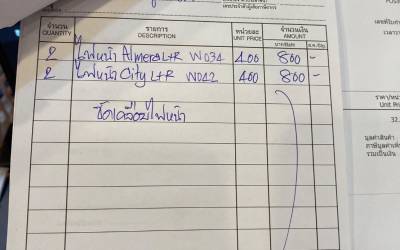 เลขประจำตัวผู้เสียภาษีอากร
จำนวน รายการ หน่วยละ จำนวนเงิน
QUANTITY DESCRIPTION UNIT PRICE AMOUNT
บาท/Baht ส.ต./Stg.
2 ไฟหน้า Almera L+R W034 400 800 -
2 ไฟหน้า City L+R W042 400 800 -
ขัดเคลือบไฟหน้า
ราคา/หน่วย
Unit Pri
32.
มูลค่าสินค้า
ภาษีมูลค่าเพิ่ม
รวมเป็นเงิน